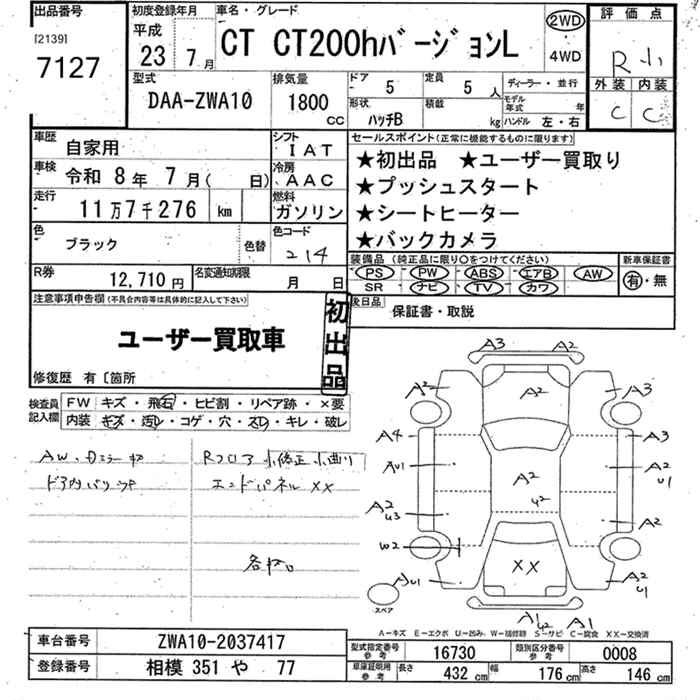 出品番号
[2139]
7127
初度登録年月
平成
23年 7月
車名・グレード
CT CT200hバージョンL
2WD
4WD
評価点
R 小
外装 内装
C C
型式
DAA-ZWA10
排気量
1800
CC
ドア 5
形状 ハッチB
定員 5人
積載 kg
ディーラー・並行
モデル年式 年
ハンドル 左・右
車歴 自家用
シフト IAT
車検 令和 8年 7月( 日)
冷房 AAC
走行 11万7千276 km
燃料 ガソリン
色 ブラック
色替
色コード 214
R券 12,710円
名変通知期限 月 日
セールスポイント(正常に機能するものに限ります)
★初出品 ★ユーザー買取り
★プッシュスタート
★シートヒーター
★バックカメラ
装備品(純正品に限り○をつけてください)
PS PW ABS エアB AW
SR ナビ TV カワ
新車保証書
有・無
後日品 保証書・取説
注意事項申告欄(不具合内容等は具体的に記入して下さい)
ユーザー買取車
初出品
修復歴 有〔箇所
検査員記入欄
FW キズ・飛石・ヒビ割・リペア跡・×要
内装 キズ・汚レ・コゲ・穴・スレ・キレ・破レ
ドア内バリツキ
Rフロア小修正小曲り
エンドパネルXX
A3 A2
A2 A2 A3
A4 A3
AU1 A2 A2 U1
A2 U3 U2 A2
W2
XX
AU1 A2 U1
スペア
AU2 A1
A－キズ E－エクボ U－凹み W－補修跡 S－サビ C－腐食 XX－交換済
車台番号 ZWA10-2037417
登録番号 相模 351 や 77
型式指定番号 参考 16730
類別区分番号 参考 0008
車庫証明用 参考 長さ 432 cm 幅 176 cm 高さ 146 cm